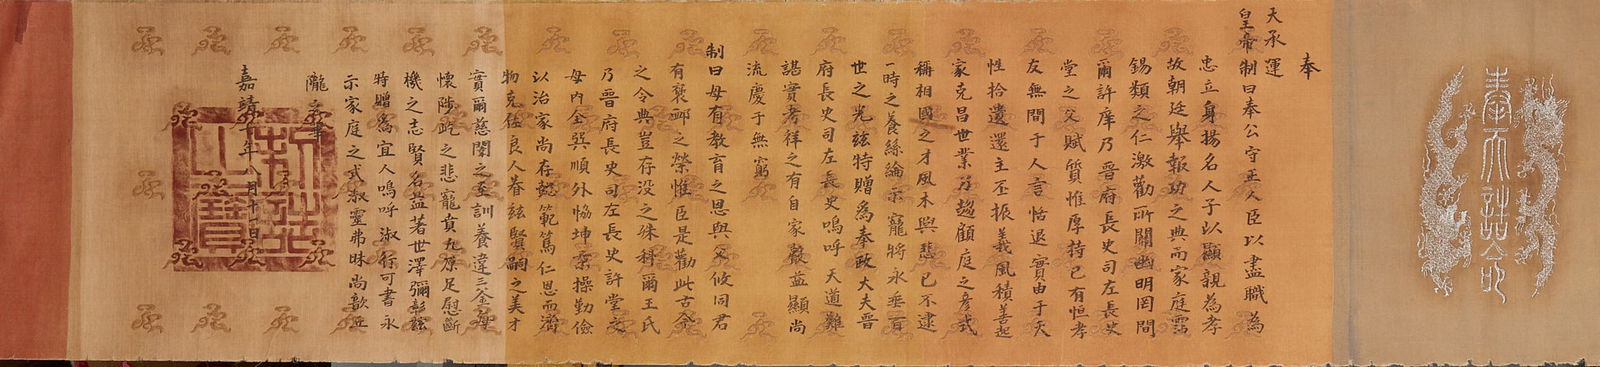 奉天誥命
奉
天承運
皇帝制曰奉公守正人臣以盡職為
忠立身揚名人子以顯親為孝
故朝廷舉報功之典而家庭霑
錫類之仁激勸所關幽明罔間
爾許庠乃晉府長史司左長史
堂之父賦質惟厚持己有恒孝
友無間于人言恬退實由于天
性拾遺還主丕振義風積善起
家克昌世業乃趨顧庭之彥式
稱相國之才風木興悲已不逮
一時之養絲綸示寵將永垂百
世之光茲特贈為奉政大夫晉
府長史司左長史嗚呼天道難
諶實考祥之有自家嚴益顯尚
流慶于無窮
制曰母有教育之恩與父攸同君
有褒卹之榮惟臣是勸此古今
之令典豈存没之殊科爾王氏
乃晉府長史司左長史許堂之
母内全巽順外恊坤柔操勤儉
以治家尚存懿範篤仁恩而濟
物克佐良人眷茲賢嗣之美才
實爾慈闈之至訓養違三釜每
懷陟屺之悲寵賁九原足慰斷
機之志賢名益著世澤彌彰茲
特贈為宜人嗚呼淑行可書永
示家庭之式淑靈弗昧尚歆丘
隴之
嘉靖十年八月十一日
制誥之寶